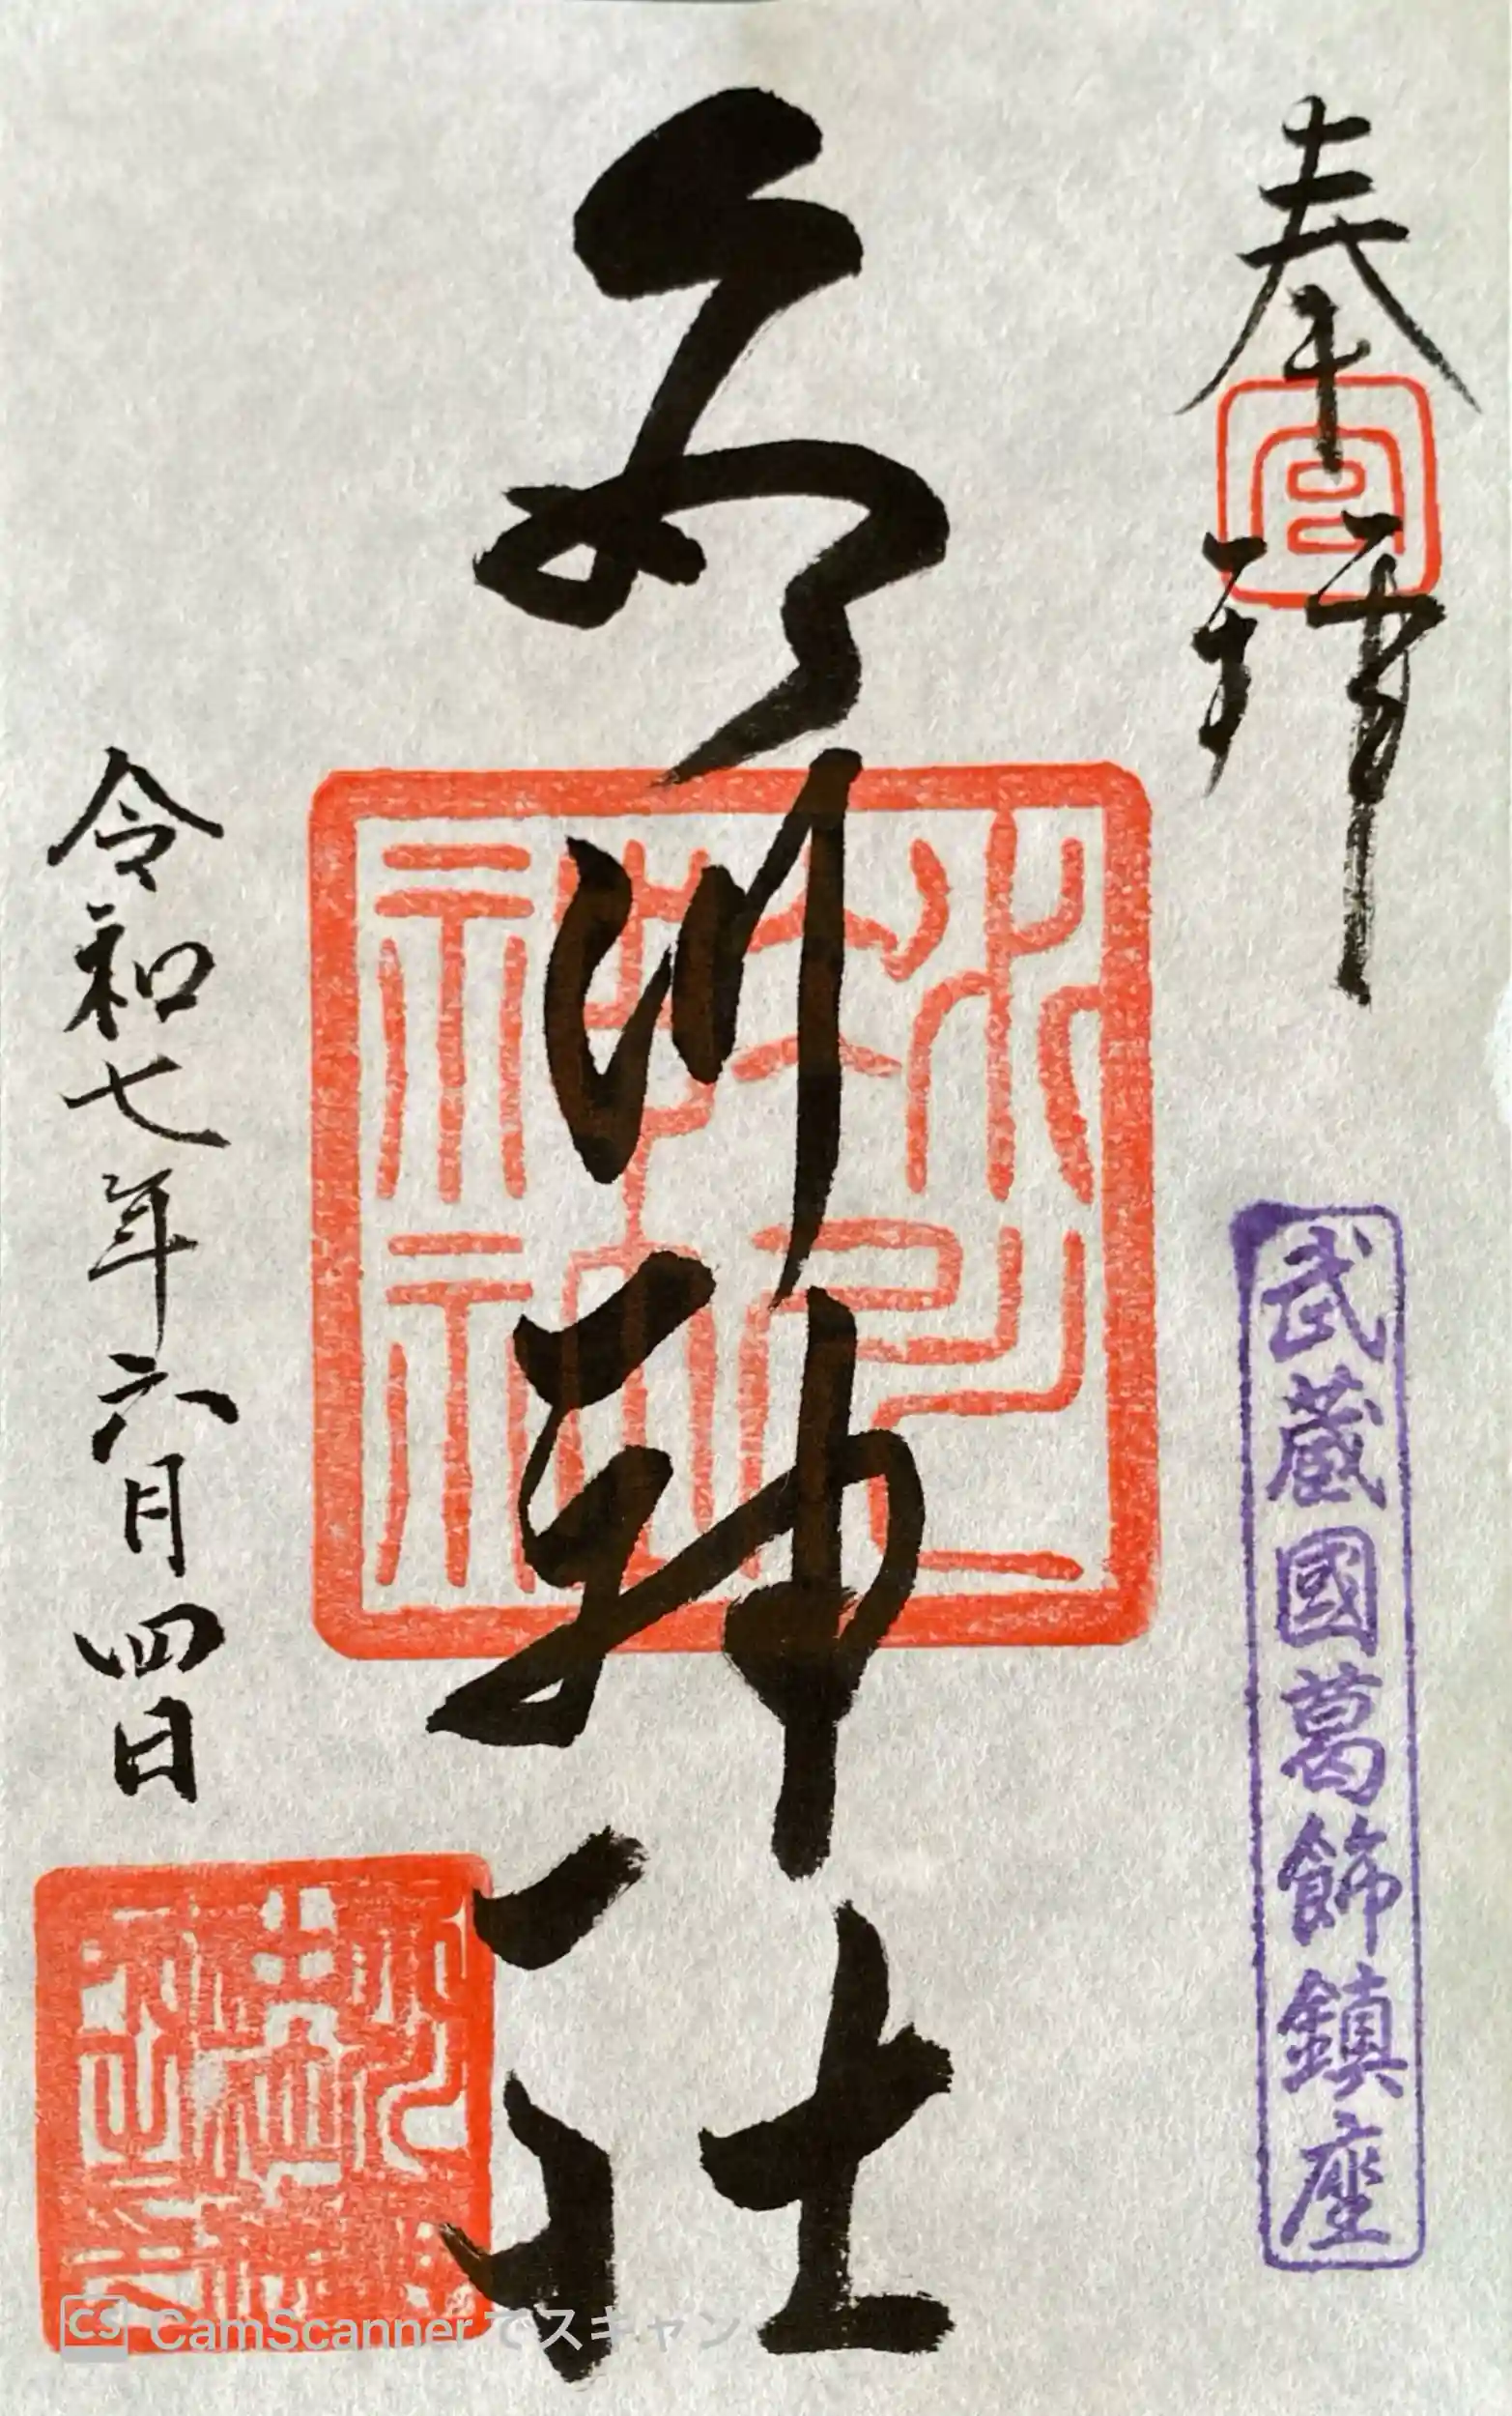 奉拝
宮
武蔵國葛飾鎮座
氷川神社
令和七年六月四日
CS CamScannerでスキャン